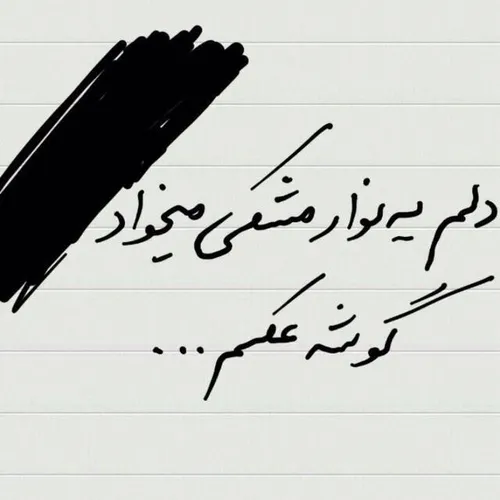 دلم یه نوار مشکی میخواد
گوشه عکسم...